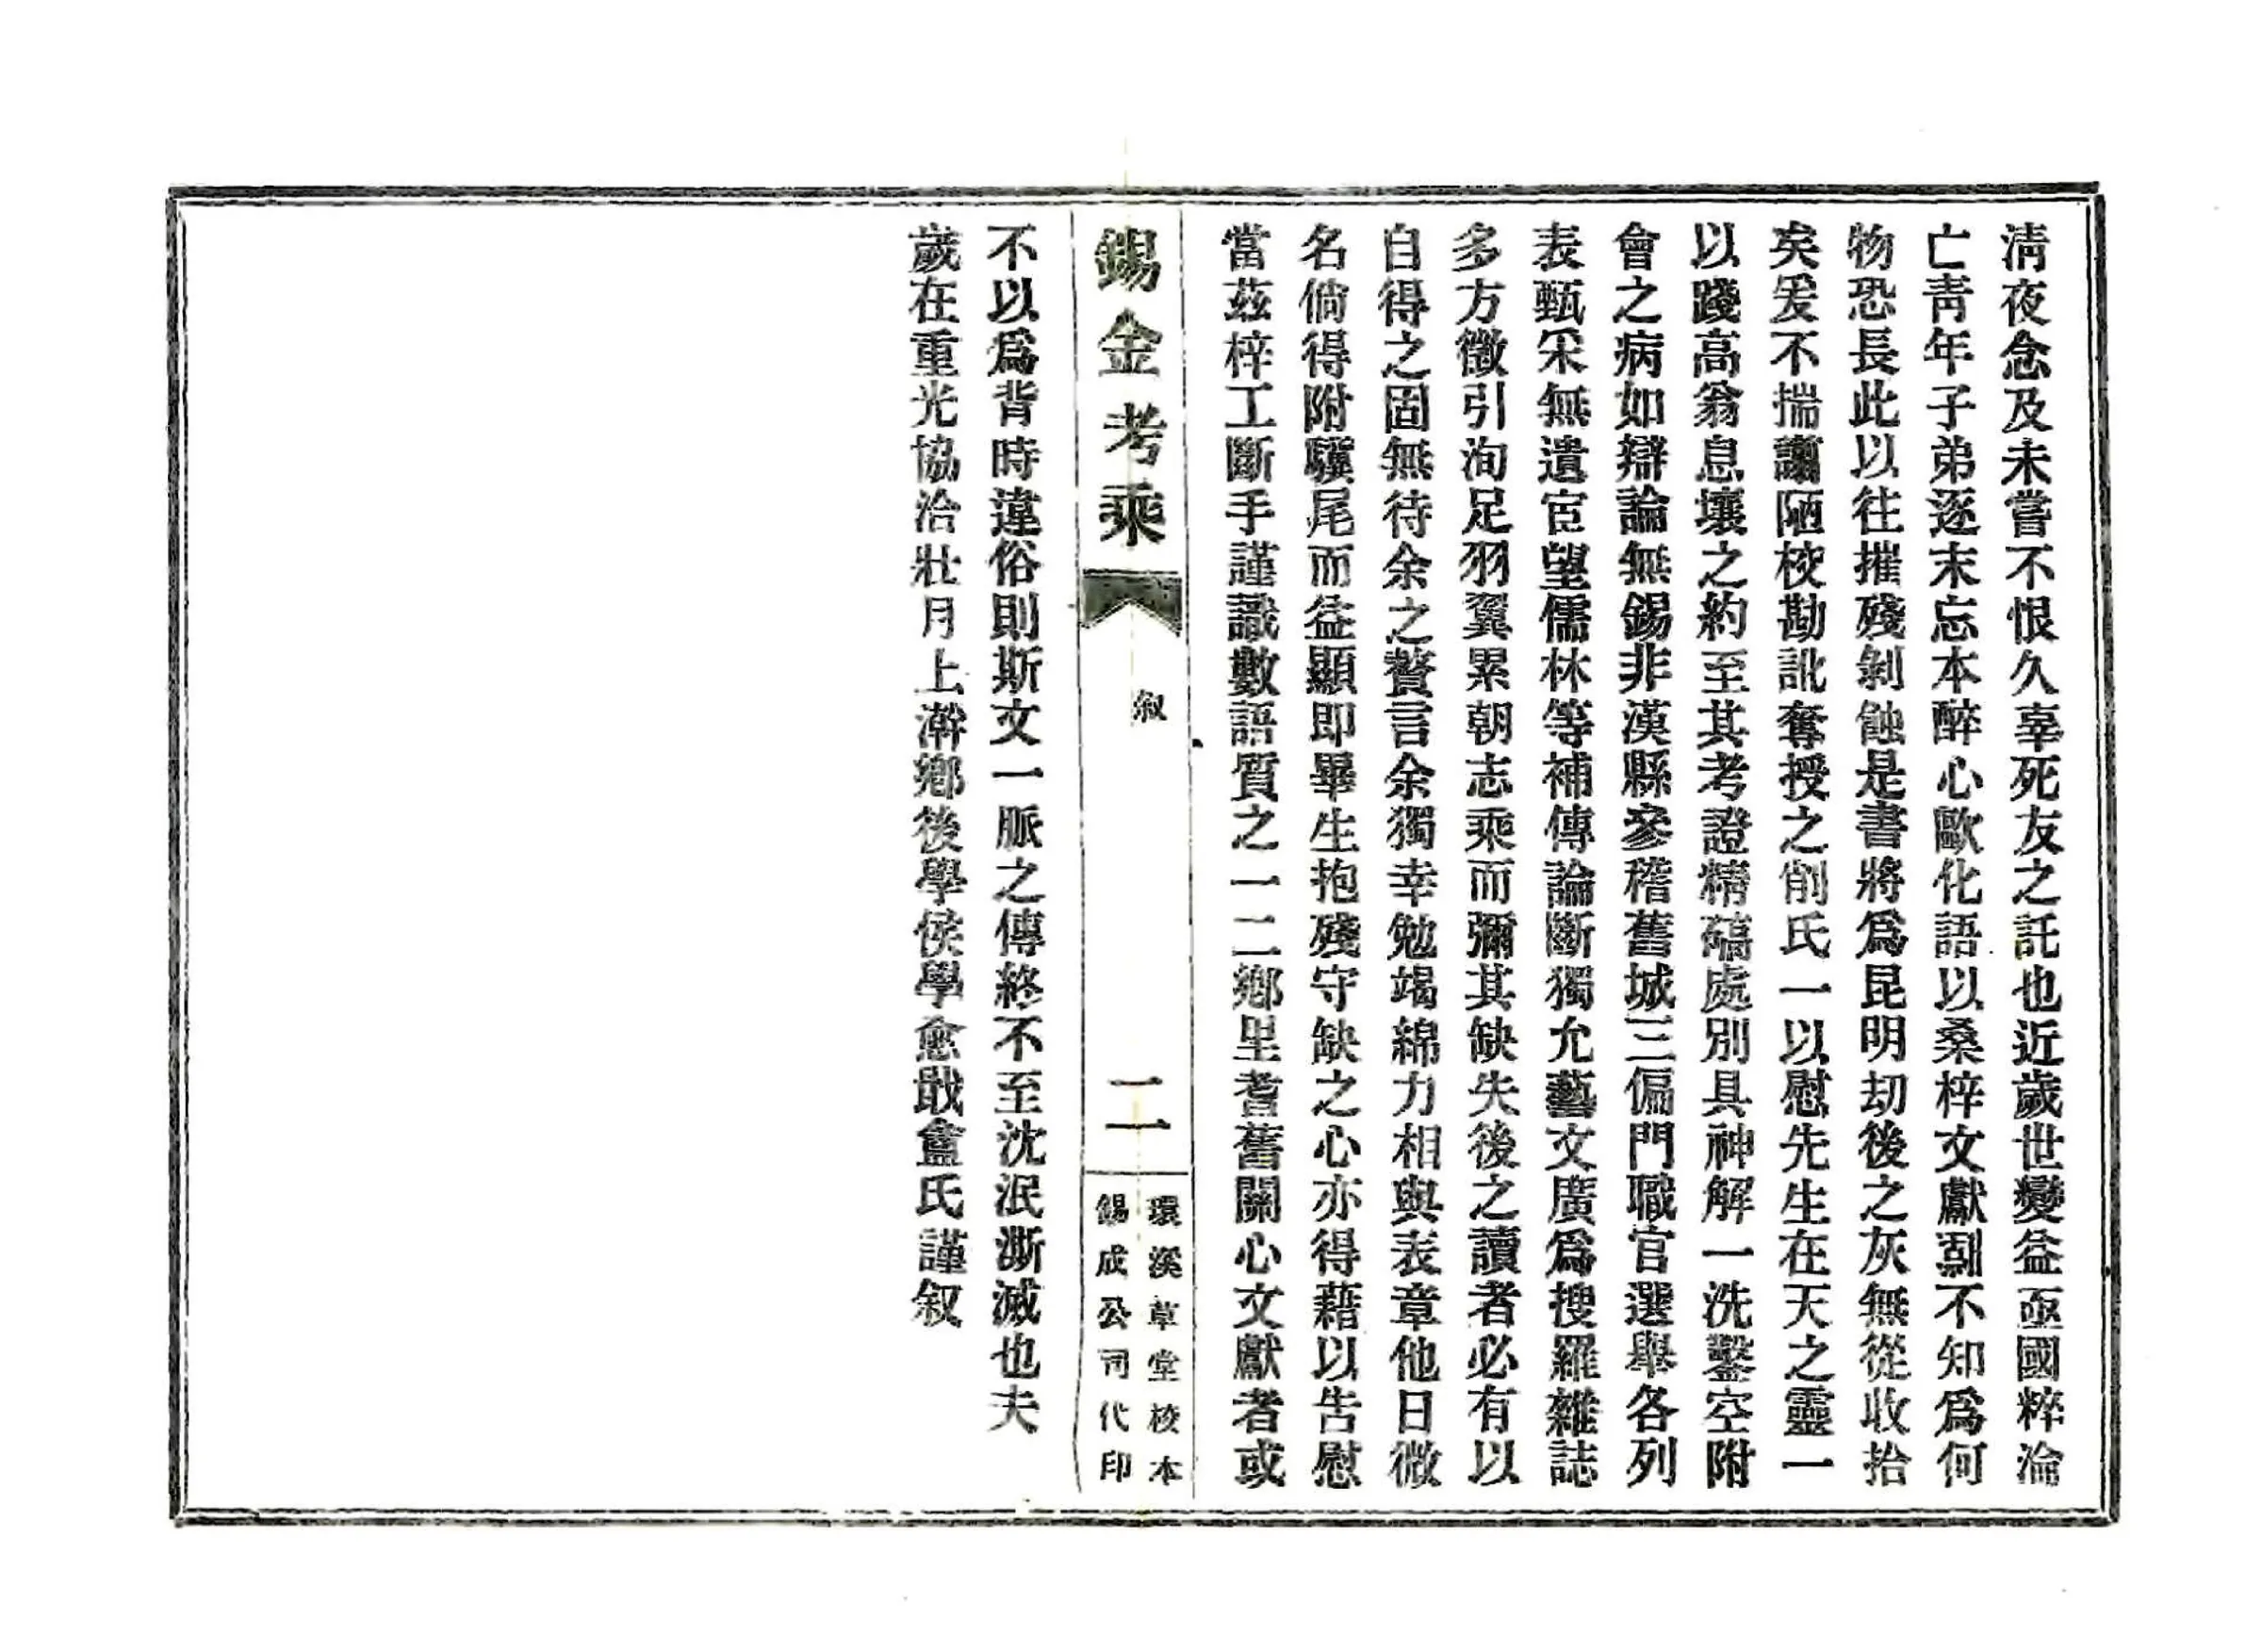 清夜念及未嘗不恨久辜死友之託也近歲世變益亟國粹淪
亡靑年子弟逐末忘本醉心歐化語以桑梓文獻不知爲何
物恐長此以往摧殘剝蝕是書將爲昆明劫後之灰無從收拾
矣爰不揣譾陋校勘訛奪授之削氏一以慰先生在天之靈一
以踐高翁息壤之約至其考證精礭處別具神解一洗鑿空附
會之病如辯論無錫非漢縣參稽舊城三偏門職官選舉各列
表甄采無遺宦望儒林等補傳論斷獨允藝文廣爲搜羅雜誌
多方徵引洵足羽翼累朝志乘而彌其缺失後之讀者必有以
自得之固無待余之贅言余獨幸勉竭綿力相與表章他日微
名倘得附驥尾而益顯即畢生抱殘守缺之心亦得藉以吿慰
當茲梓工斷手謹識數語質之一二鄉里耆舊關心文獻者或
錫金考乘
敘
二
環溪草堂校本
錫成公司代印
不以爲背時違俗則斯文一脈之傳終不至沈泯澌滅也夫
歲在重光協洽壯月上澣鄉後學侯學愈戢盦氏謹叙